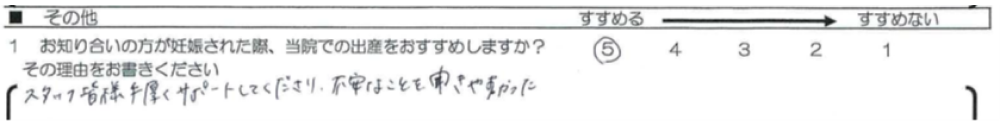 ■ その他 すすめる → すすめない
1 お知り合いの方が妊娠された際、当院での出産をおすすめしますか? ⑤ 4 3 2 1
その理由をお書きください
スタッフ皆様手厚くサポートしてくださり、不安なことも聞きやすかった